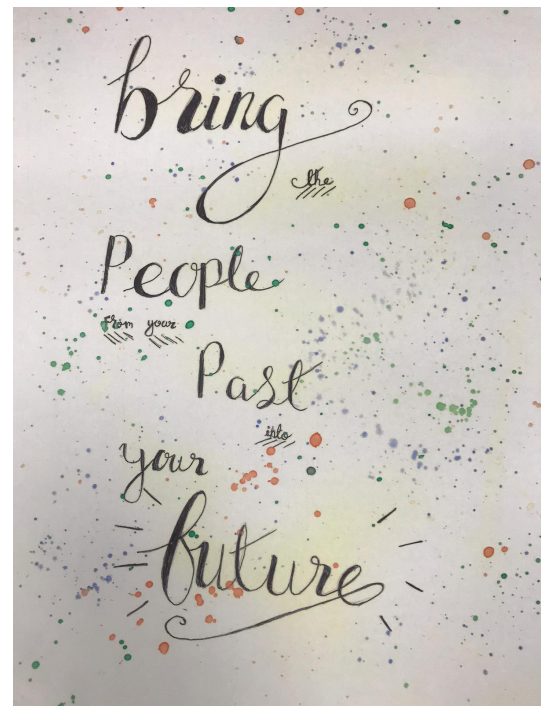 bring
the
People
from your
Past
into
your
future